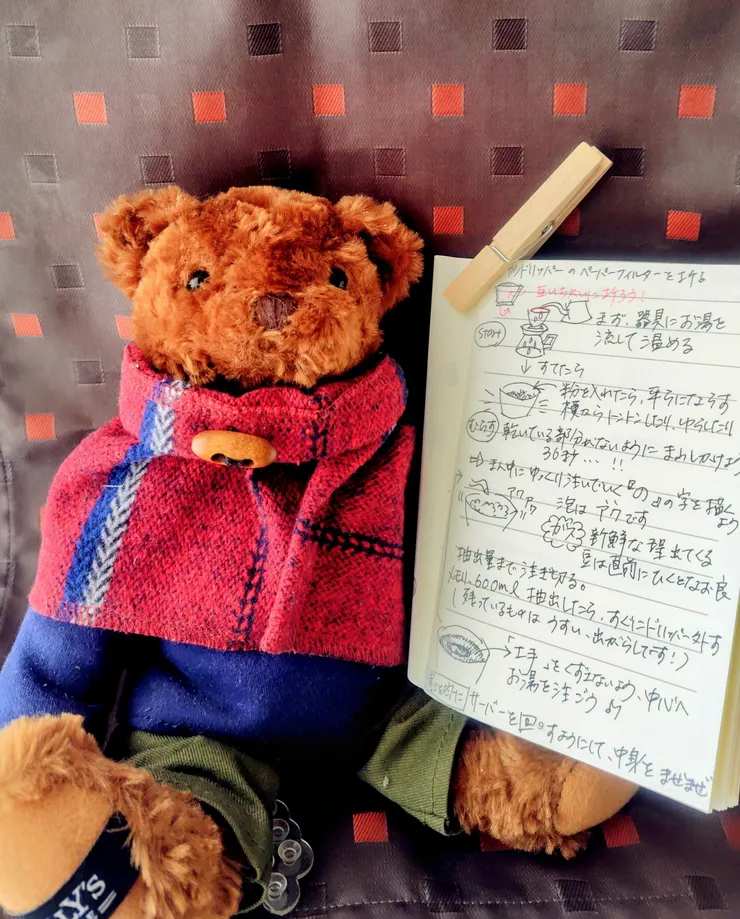 ドリッパーのペーパーフィルターを折る
互いちがいに折ろう!
まず、器具にお湯を
流して温める
start
↓ すてたら
粉を入れたら、平らにならす
横からトントンしたり、ゆらしたり
むらす 乾いている部分がないように まわしかけよう
30秒...!!
⇒ まん中に ゆっくり注いでいく「の」の字を描くよう
アワアワ 泡は アクです
ガス 新鮮な程出てくる
豆は直前にひくとなお良
抽出量まで注ぎ切る。
メモリ〜600ml 抽出したら、すぐにドリッパー外す
(残っているものは うすい、出がらしです!)
→「土手」をくずさないよう、中心へ
お湯を注ごう
サーバーを回すようにして、中身を まぜまぜ
LY'S